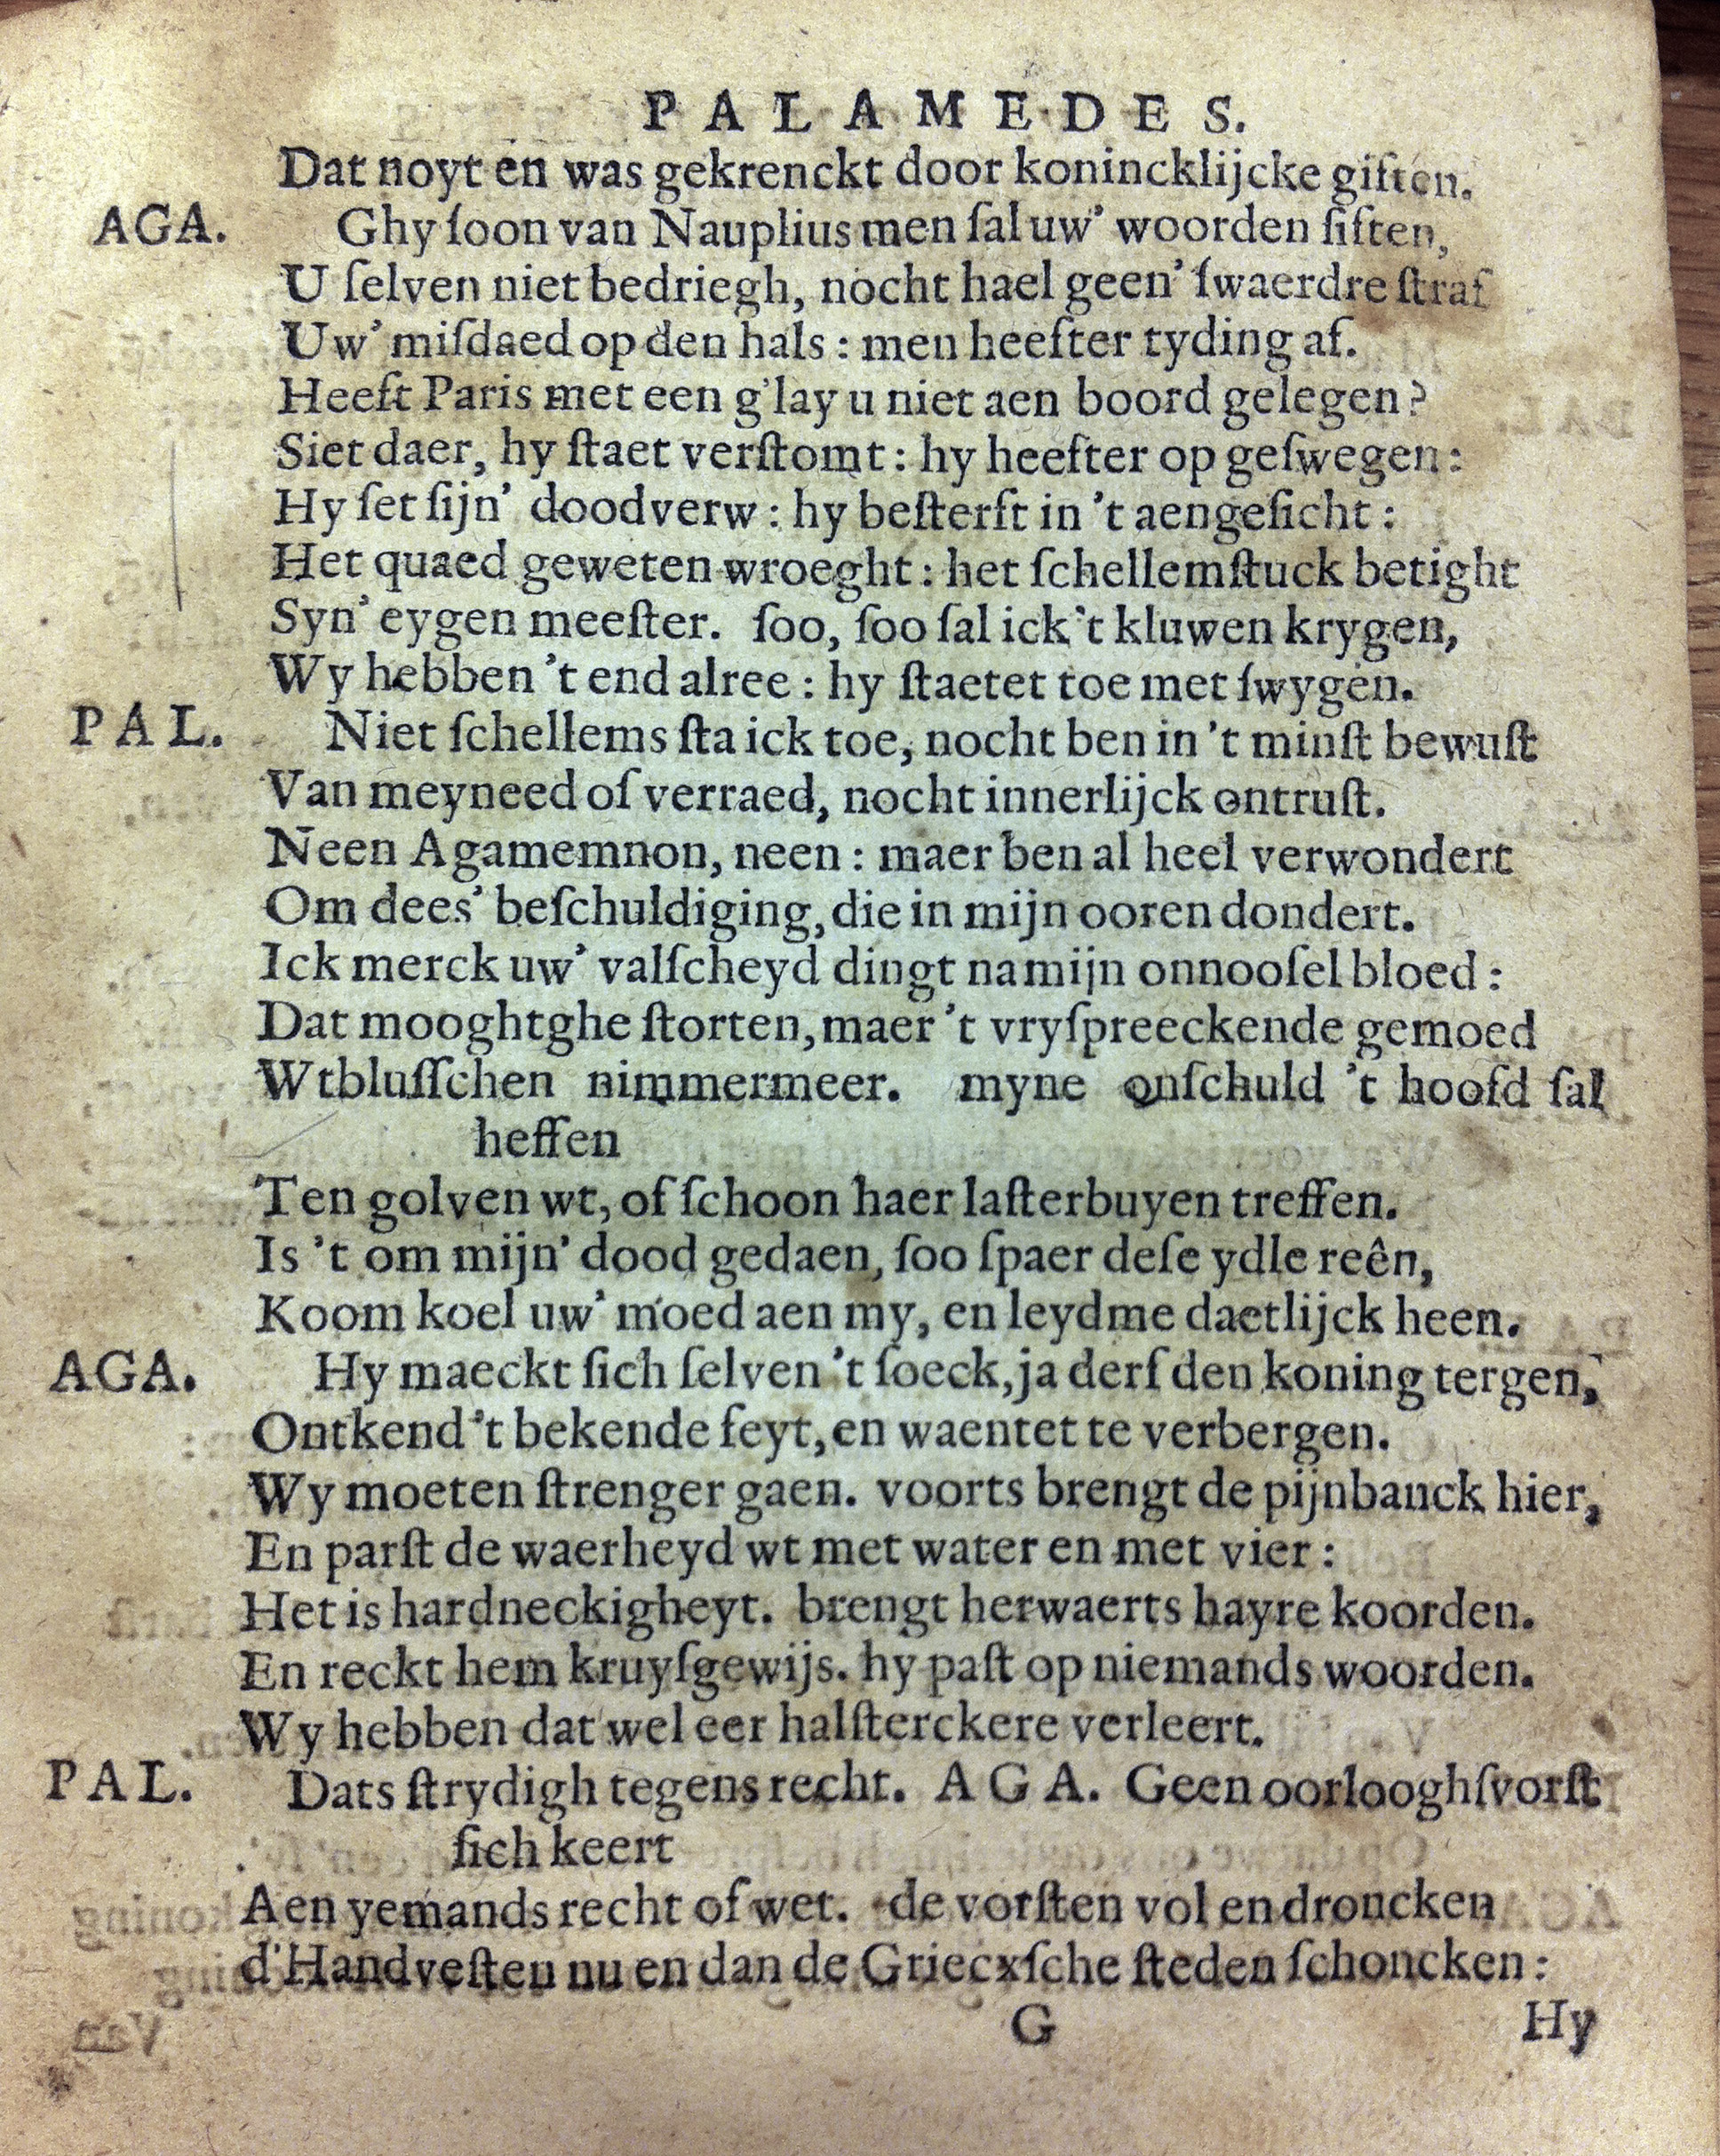 PALAMEDES.
Dat noyt en was gekrenckt door konincklijcke giften.
AGA. Ghy ſoon van Nauplius men ſal uw’ woorden ſiften,
U ſelven niet bedriegh, nocht hael geen’ ſwaerdre ſtraf
Uw’ miſdaed op den hals : men heefter tyding af.
Heeft Paris met een g'lay u niet aen boord gelegen?
Siet daer, hy ſtaet verſtomt : hy heefter op geſwegen :
Hy ſet ſijn’ doodverw : hy beſterft in ’t aengeſicht :
Het quaed geweten wroeght : het ſchellemſtuck betight
Syn’ eygen meeſter. ſoo, ſoo ſal ick ’t kluwen krygen,
Wy hebben ’t end alree : hy ſtaetet toe met ſwygen.
PAL. Niet ſchellems ſta ick toe, nocht ben in ’t minſt bewuſt
Van meyneed of verraed, nocht innerlijck ontruſt.
Neen Agamemnon, neen : maer ben al heel verwondert
Om dees’ beſchuldiging, die in mijn ooren dondert.
Ick merck uw’ valſcheyd dingt na mijn onnooſel bloed :
Dat mooghtghe ſtorten, maer ’t vryſpreeckende gemoed
Wtbluſſchen nimmermeer. myne onſchuld ’t hoofd ſal
heffen
Ten golven wt, of ſchoon haer laſterbuyen treffen.
Is ’t om mijn’ dood gedaen, ſoo ſpaer deſe ydle reên,
Koom koel uw’ moed aen my, en leydme daetlijck heen.
AGA. Hy maeckt ſich ſelven ’t ſoeck, ja derf den koning tergen,
Ontkend ’t bekende feyt, en waentet te verbergen.
Wy moeten ſtrenger gaen. voorts brengt de pijnbanck hier,
En parſt de waerheyd wt met water en met vier :
Het is hardneckigheyt. brengt herwaerts hayre koorden.
En reckt hem kruyſgewijs. hy paſt op niemands woorden.
Wy hebben dat wel eer halſterckere verleert.
PAL. Dats ſtrydigh tegens recht. AGA. Geen oorlooghſvorſt
ſich keert
Aen yemands recht of wet. de vorſten vol en droncken
d'Handveſten nu en dan de Griecxſche ſteden ſchoncken :
G Hy